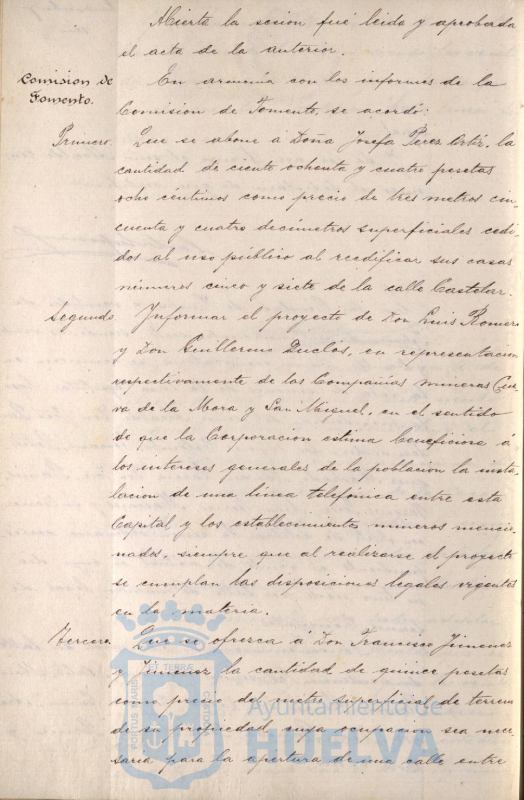 Abierta la sesion fué leida y aprobada
el acta de la anterior.
Comision de
Fomento.
En armonia con los informes de la
Comision de Fomento, se acordó:
Primero.
Que se abone á Doña Josefa Perez Ortiz, la
cantidad de ciento ochenta y cuatro pesetas
ocho céntimos como precio de tres metros cin
cuenta y cuatro decímetros superficiales cedi-
dos al uso público al reedificar sus casas
números cinco y siete de la calle Castelar.
Segundo.
Informar el proyecto de Don Luis Romero
y Don Guillermo Duclós, en representacion
respectivamente de las Compañias mineras Cue
va de la Mora y San Miguel, en el sentido
de que la Corporacion estima beneficioso á
los intereses generales de la poblacion la insta-
lacion de una linea telefónica entre esta
Capital y los establecimientos mineros mencio-
nados, siempre que al realizarse el proyecto
se cumplan las disposiciones legales vigentes
en la materia.
Tercero.
Que se ofrezca á Don Francisco Jimenez
y Jimenez la cantidad de quince pesetas
como precio del metro superficial de terreno
de su propiedad cuya ocupacion sea nece
saria para la apertura de una calle entre
PORTUS MARIS ET TERRÆ CUSTODIA
Ayuntamiento de
HUELVA